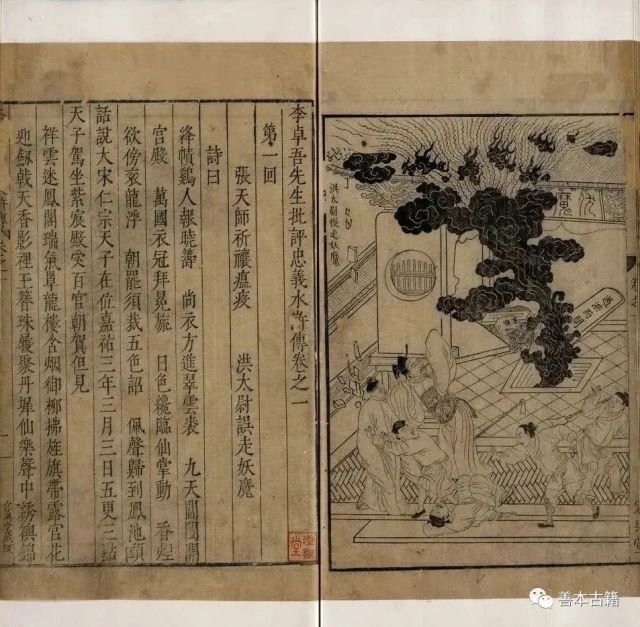 洪太尉悮走妖魔
遇洪而開
李卓吾先生批評忠義水滸傳卷之一
第一回
張天師祈禳瘟疫 洪太尉誤走妖魔
詩曰
絳幘鷄人報曉籌 尚衣方進翠雲裘 九天閶闔開
宮殿 萬國衣冠拜冕旒 日色纔臨仙掌動 香煙
欲傍袞龍浮 朝罷須裁五色詔 佩聲歸到鳳池頭
話說大宋仁宗天子在位嘉祐三年三月三日五更三點
天子駕坐紫宸殿受百官朝賀但見
祥雲迷鳳閣瑞氣罩龍樓含烟御柳拂旌旗帶露宮花
迎劔戟天香影裡玉簪珠履聚丹墀仙樂聲中綉襖錦
善本古籍